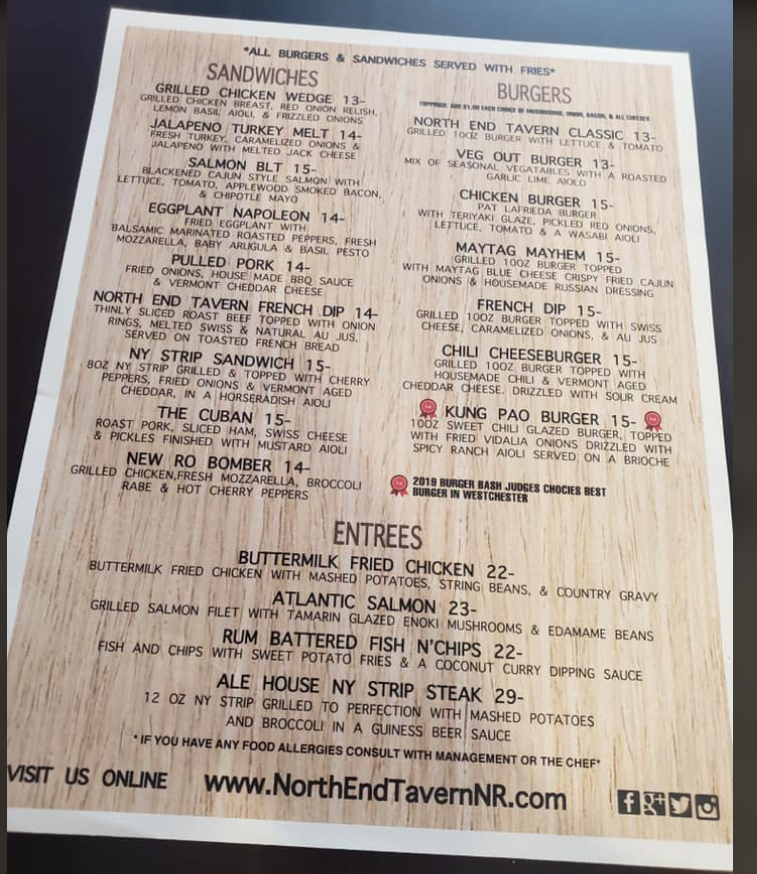 *ALL BURGERS & SANDWICHES SERVED WITH FRIES*
SANDWICHES
GRILLED CHICKEN WEDGE 13-
GRILLED CHICKEN BREAST, RED ONION RELISH,
LEMON BASIL AIOLI, & FRIZZLED ONIONS
JALAPENO TURKEY MELT 14-
FRESH TURKEY, CARAMELIZED ONIONS &
JALAPENO WITH MELTED JACK CHEESE
SALMON BLT 15-
BLACKENED CAJUN STYLE SALMON WITH
LETTUCE, TOMATO, APPLEWOOD SMOKED BACON,
& CHIPOTLE MAYO
EGGPLANT NAPOLEON 14-
FRIED EGGPLANT WITH
BALSAMIC MARINATED ROASTED PEPPERS, FRESH
MOZZARELLA, BABY ARUGULA & BASIL PESTO
PULLED PORK 14-
FRIED ONIONS, HOUSE MADE BBQ SAUCE
& VERMONT CHEDDAR CHEESE
NORTH END TAVERN FRENCH DIP 14-
THINLY SLICED ROAST BEEF TOPPED WITH ONION
RINGS, MELTED SWISS & NATURAL AU JUS,
SERVED ON TOASTED FRENCH BREAD
NY STRIP SANDWICH 15-
8OZ NY STRIP GRILLED & TOPPED WITH CHERRY
PEPPERS, FRIED ONIONS & VERMONT AGED
CHEDDAR, IN A HORSERADISH AIOLI
THE CUBAN 15-
ROAST PORK, SLICED HAM, SWISS CHEESE
& PICKLES FINISHED WITH MUSTARD AIOLI
NEW RO BOMBER 14-
GRILLED CHICKEN,FRESH MOZZARELLA, BROCCOLI
RABE & HOT CHERRY PEPPERS
BURGERS
TOPPINGS: ADD $1.00 EACH CHOICE OF MUSHROOMS, ONION, BACON, & ALL CHEESES
NORTH END TAVERN CLASSIC 13-
GRILLED 10OZ BURGER WITH LETTUCE & TOMATO
VEG OUT BURGER 13-
MIX OF SEASONAL VEGATABLES WITH A ROASTED
GARLIC LIME AIOLO
CHICKEN BURGER 15-
PAT LAFRIEDA BURGER
WITH TERIYAKI GLAZE, PICKLED RED ONIONS,
LETTUCE, TOMATO & A WASABI AIOLI
MAYTAG MAYHEM 15-
GRILLED 10OZ BURGER TOPPED
WITH MAYTAG BLUE CHEESE CRISPY FRIED CAJUN
ONIONS & HOUSEMADE RUSSIAN DRESSING
FRENCH DIP 15-
GRILLED 10OZ BURGER TOPPED WITH SWISS
CHEESE, CARAMELIZED ONIONS, & AU JUS
CHILI CHEESEBURGER 15-
GRILLED 10OZ BURGER TOPPED WITH
HOUSEMADE CHILI & VERMONT AGED
CHEDDAR CHEESE. DRIZZLED WITH SOUR CREAM
KUNG PAO BURGER 15-
10OZ SWEET CHILI GLAZED BURGER, TOPPED
WITH FRIED VIDALIA ONIONS DRIZZLED WITH
SPICY RANCH AIOLI SERVED ON A BRIOCHE
2019 BURGER BASH JUDGES CHOCIES BEST
BURGER IN WESTCHESTER
ENTREES
BUTTERMILK FRIED CHICKEN 22-
BUTTERMILK FRIED CHICKEN WITH MASHED POTATOES, STRING BEANS, & COUNTRY GRAVY
ATLANTIC SALMON 23-
GRILLED SALMON FILET WITH TAMARIN GLAZED ENOKI MUSHROOMS & EDAMAME BEANS
RUM BATTERED FISH N'CHIPS 22-
FISH AND CHIPS WITH SWEET POTATO FRIES & A COCONUT CURRY DIPPING SAUCE
ALE HOUSE NY STRIP STEAK 29-
12 OZ NY STRIP GRILLED TO PERFECTION WITH MASHED POTATOES
AND BROCCOLI IN A GUINESS BEER SAUCE
*IF YOU HAVE ANY FOOD ALLERGIES CONSULT WITH MANAGEMENT OR THE CHEF*
VISIT US ONLINE www.NorthEndTavernNR.com